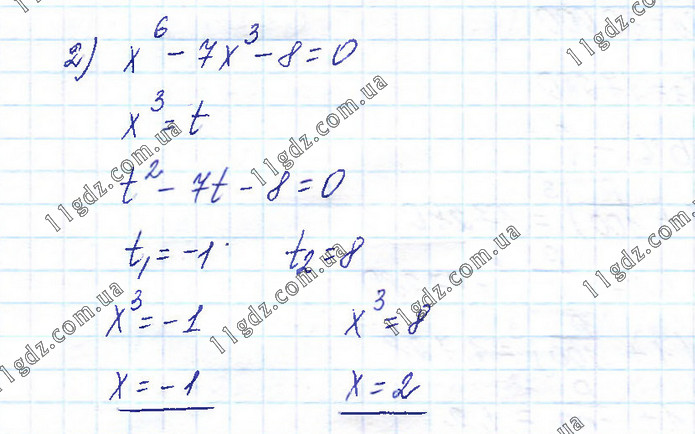 2) x⁶ - 7x³ - 8 = 0
x³ = t
t² - 7t - 8 = 0
t₁ = -1. t₂ = 8
x³ = -1 x³ = 8
x = -1 x = 2
11gdz.com.ua
11gdz.com.ua
11gdz.com.ua
11gdz.com.ua
11gdz.com.ua
11gdz.com.ua
11gdz.com.ua